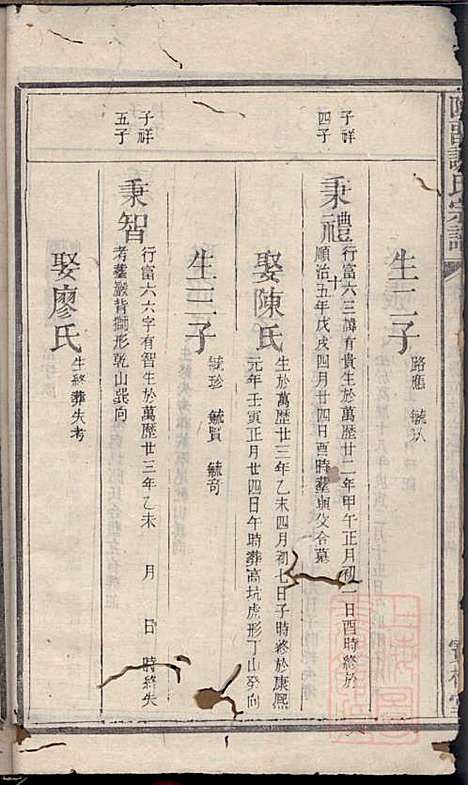 生二子
路應 毓以
子祥
四子
秉禮
行富六三諱有貴生於萬歷廿二年甲午正月初一日酉時終於
順治五年戊戌四月廿四日酉時葬與父合墓
娶陳氏
生於萬歷廿三年乙未四月初七日子時終於康熙
元年壬寅正月廿四日午時葬高坑虎形丁山癸向
生三子
毓珍 毓賢 毓奇
子祥
五子
秉智
行富六六字有智生於萬歷廿三年乙未 月 日 時終失
考葬嚴背獅形乾山巽向
娶廖氏
生終葬失考